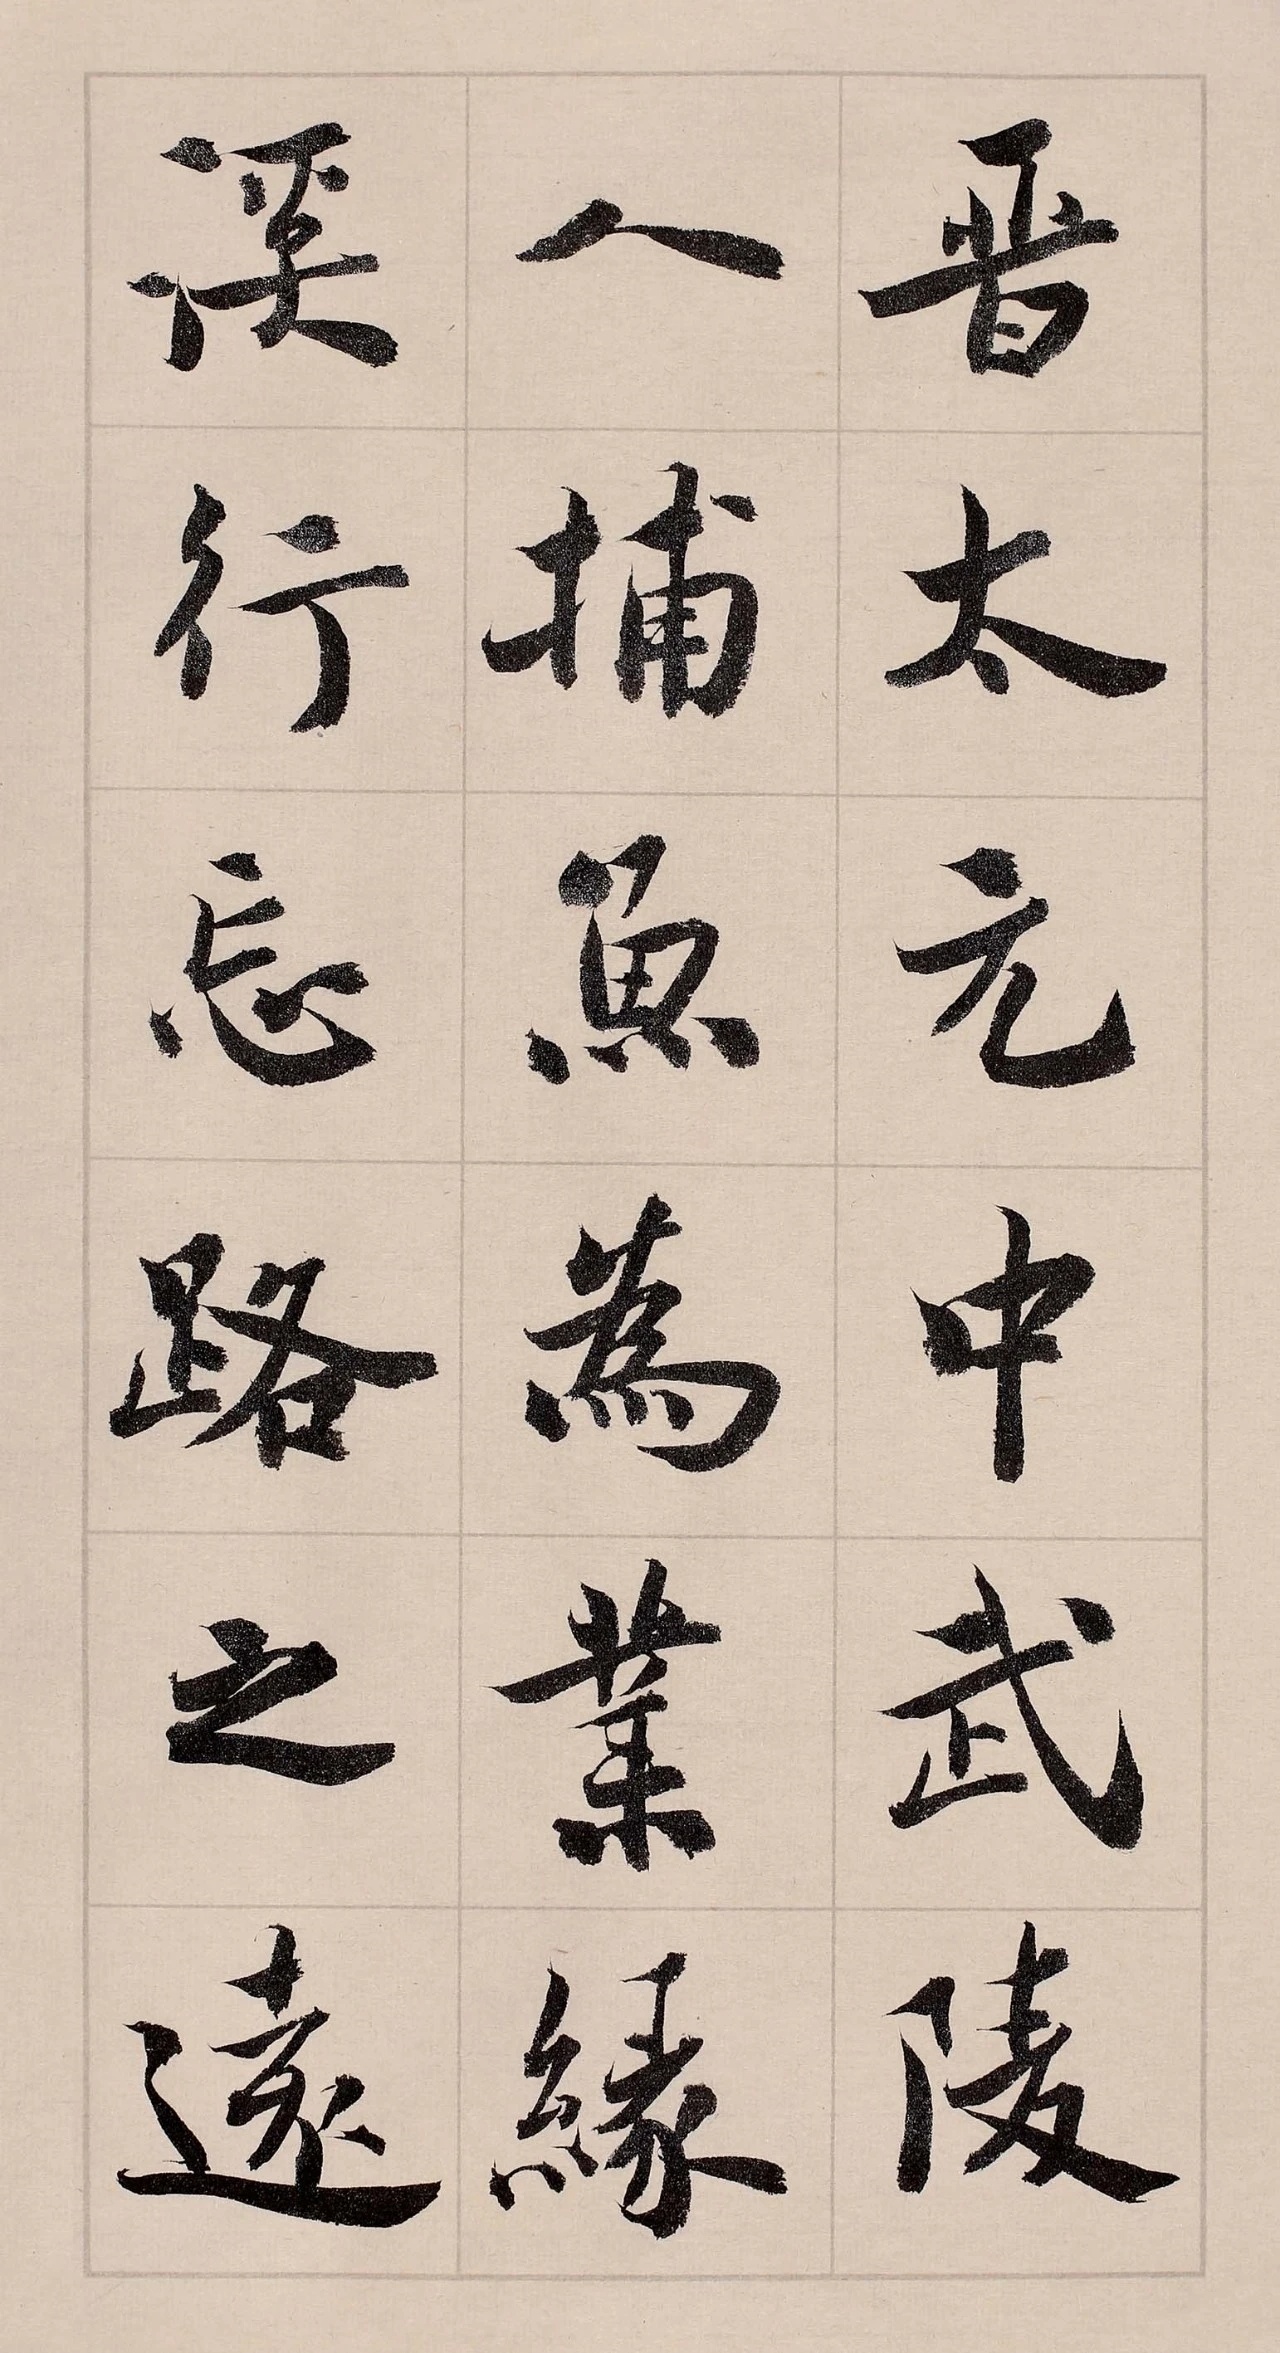 晋太元中武陵
人捕魚為業緣
溪行忘路之遠